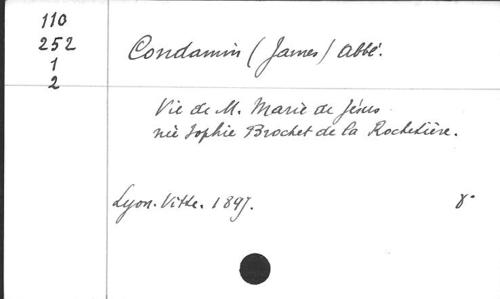 110
252
1
2
Condamin (James) Abbé.
Vie de M. Marie de Jésus
née Sophie Brochet de la Rochetière.
Lyon. Vitte. 1897. 8°